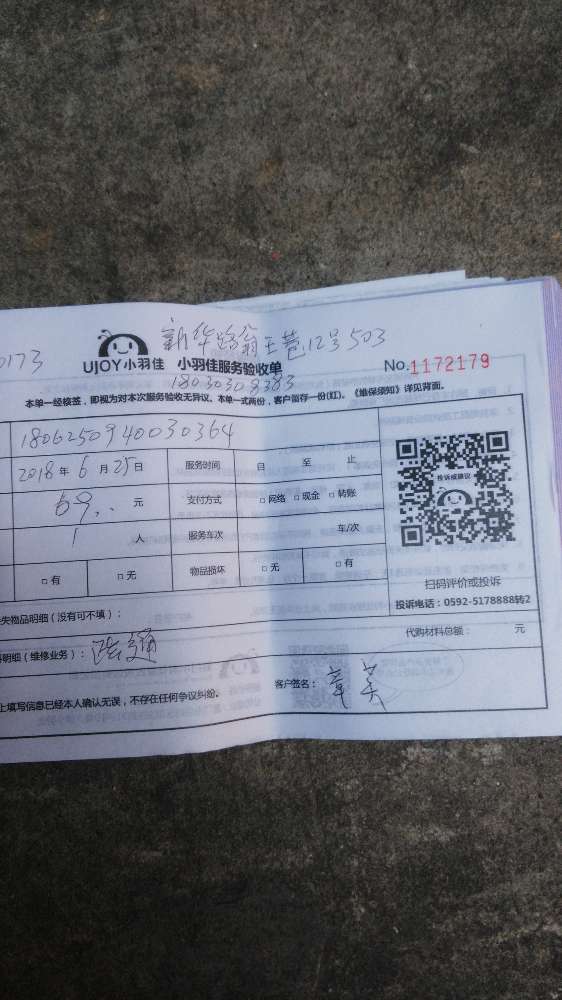 新华路翁王巷12号503
0173
UJOY小羽佳 小羽佳服务验收单
No.1172179
18030308383
本单一经核签，即视为对本次服务验收无异议。本单一式两份，客户留存一份(红)。《维保须知》详见背面。
1806250940030364
2018年6月25日 服务时间 自 至 止
69.. 元 支付方式 □网络 □现金 □转账
1 人 服务车次 车/次
□有 □无 物品损坏 □无 □有
投诉或建议
扫码评价或投诉
投诉电话：0592-5178888转2
失物品明细（没有可不填）：
明细（维修业务）： 疏通 代购材料总额： 元
上填写信息已经本人确认无误，不存在任何争议纠纷。 客户签名：